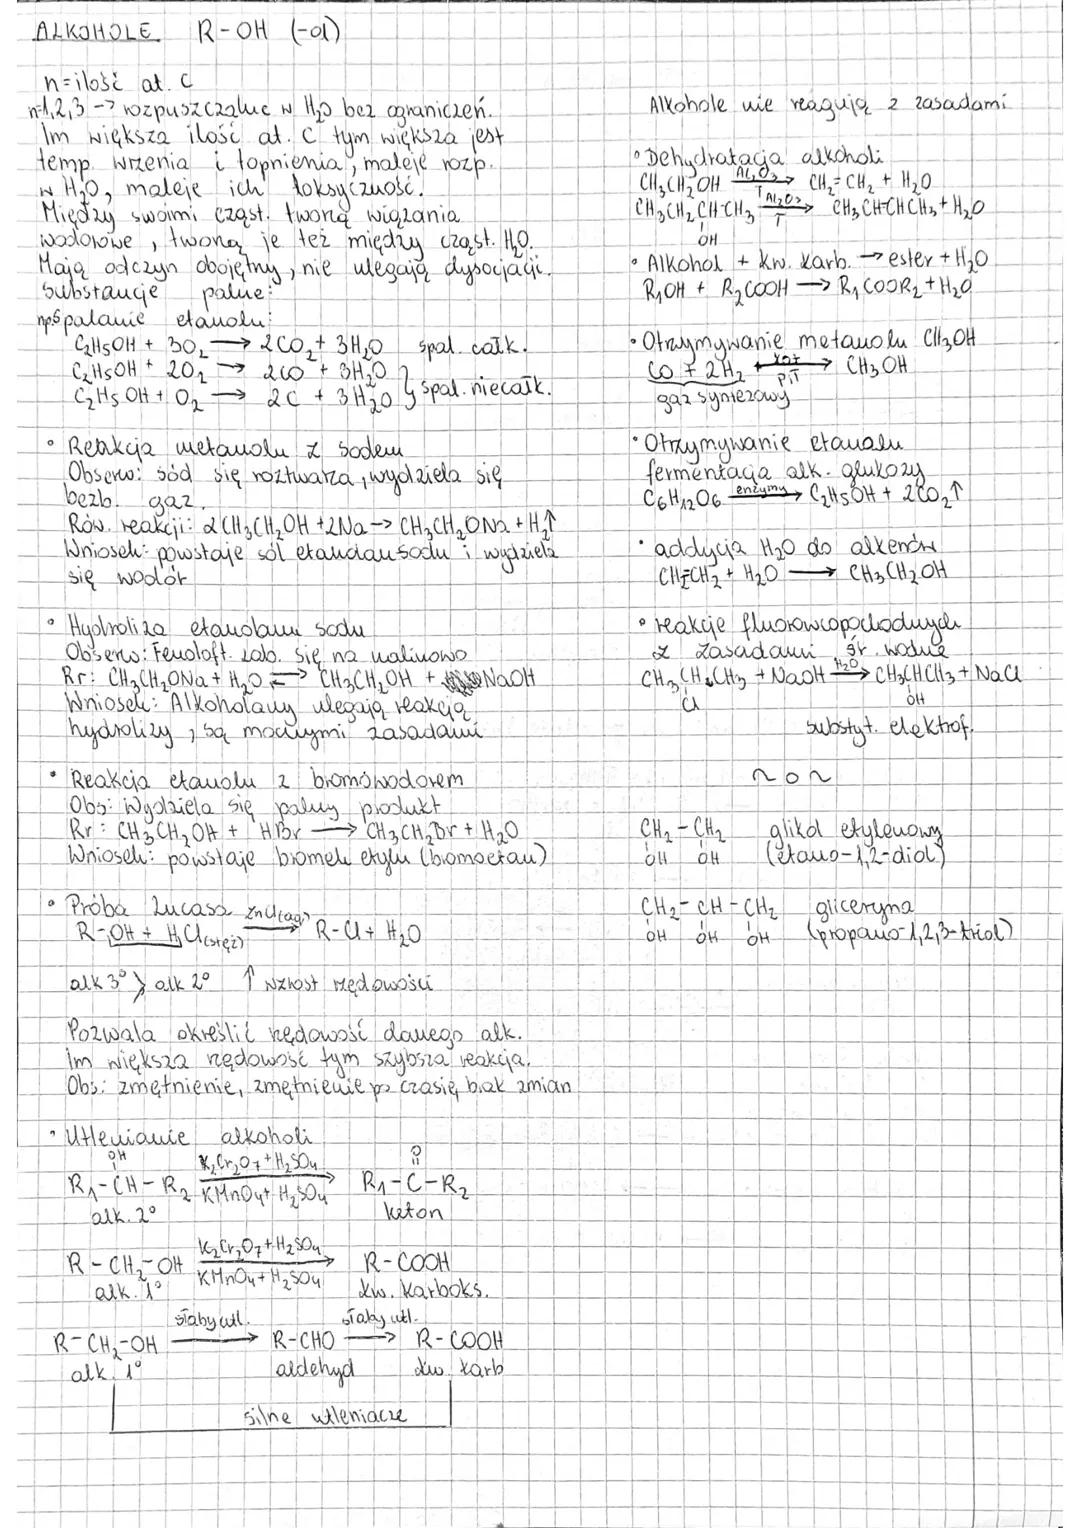 ALKOHOLE R-OH (-ol)
n=ilość at. C
n=1,2,3 -> rozpuszczalne w H₂O bez ograniczeń.
Im większa ilość at. C tym większa jest
temp. wrzenia i topnienia, maleje rozp.
w H₂O, maleje ich toksyczność.
Między swoimi cząst. tworzą wiązania
wodorowe, tworzą je też między cząst. H₂O.
Mają odczyn obojętny, nie ulegają dysocjacji.
Substancje palne:
np. Spalanie etanolu:
C₂H₅OH + 3O₂ → 2CO₂ + 3H₂O spal. całk.
C₂H₅OH + 2O₂ → 2CO + 3H₂O
C₂H₅OH + O₂ → 2C + 3H₂O } spal. niecałk.
• Reakcja metanolu z sodem
Obserw: sód się roztwarza, wydziela się
bezb. gaz.
Rów. reakcji: 2CH₃CH₂OH + 2Na -> CH₃CH₂ONa + H₂↑
Wniosek: powstaje sól etanolan sodu i wydziela
się wodór
• Hydroliza etanolanu sodu
Obserw: Fenoloft. zab. się na malinowo
Rr: CH₃CH₂ONa + H₂O ⇌ CH₃CH₂OH + NaOH
Wniosek: Alkoholany ulegają reakcją
hydrolizy, są mocnymi zasadami
• Reakcja etanolu z bromowodorem
Obs: Wydziela się palny produkt
Rr: CH₃CH₂OH + HBr → CH₃CH₂Br + H₂O
Wniosek: powstaje bromek etylu (bromoetan)
• Próba Lucasa
R-OH + HCl(stęż) ZnCl(aq) → R-Cl + H₂O
alk 3° > alk 2° ↑ wzrost rzędowości
Pozwala określić rzędowość danego alk.
Im większa rzędowość tym szybsza reakcja.
Obs: zmętnienie, zmętnienie po czasie, brak zmian
• Utlenianie alkoholi
OH K₂Cr₂O₇+H₂SO₄ O
R₁-CH-R₂ KMnO₄+H₂SO₄ → R₁-C-R₂
alk. 2° keton
K₂Cr₂O₇+H₂SO₄
R-CH₂-OH → R-COOH
alk. 1° KMnO₄+H₂SO₄ kw. karboks.
słaby utl. słaby utl.
R-CH₂-OH → R-CHO → R-COOH
alk. 1° aldehyd kw. karb
silne utleniacze
Alkohole nie reagują z zasadami
• Dehydratacja alkoholi
CH₃CH₂OH Al₂O₃ T → CH₂=CH₂ + H₂O
CH₃CH₂CH-CH₃ Al₂O₃ T → CH₃CH=CHCH₃ + H₂O
OH
• Alkohol + kw. karb. → ester + H₂O
R₁OH + R₂COOH → R₁COOR₂ + H₂O
• Otrzymywanie metanolu CH₃OH
CO + 2H₂ kat p,T → CH₃OH
gaz syntezowy
• Otrzymywanie etanolu
fermentacja alk. glukozy
C₆H₁₂O₆ enzymy → C₂H₅OH + 2CO₂↑
• addycja H₂O do alkenów
CH₂=CH₂ + H₂O → CH₃CH₂OH
• reakcje fluorowcopochodnych
z zasadami śr. wodne
CH₃CHCH₃ + NaOH H₂O → CH₃CHCH₃ + NaCl
Cl OH
substyt. elektrof.
~ o ~
CH₂-CH₂ glikol etylenowy
OH OH (etano-1,2-diol)
CH₂-CH-CH₂ gliceryna
OH OH OH (propano-1,2,3-triol)